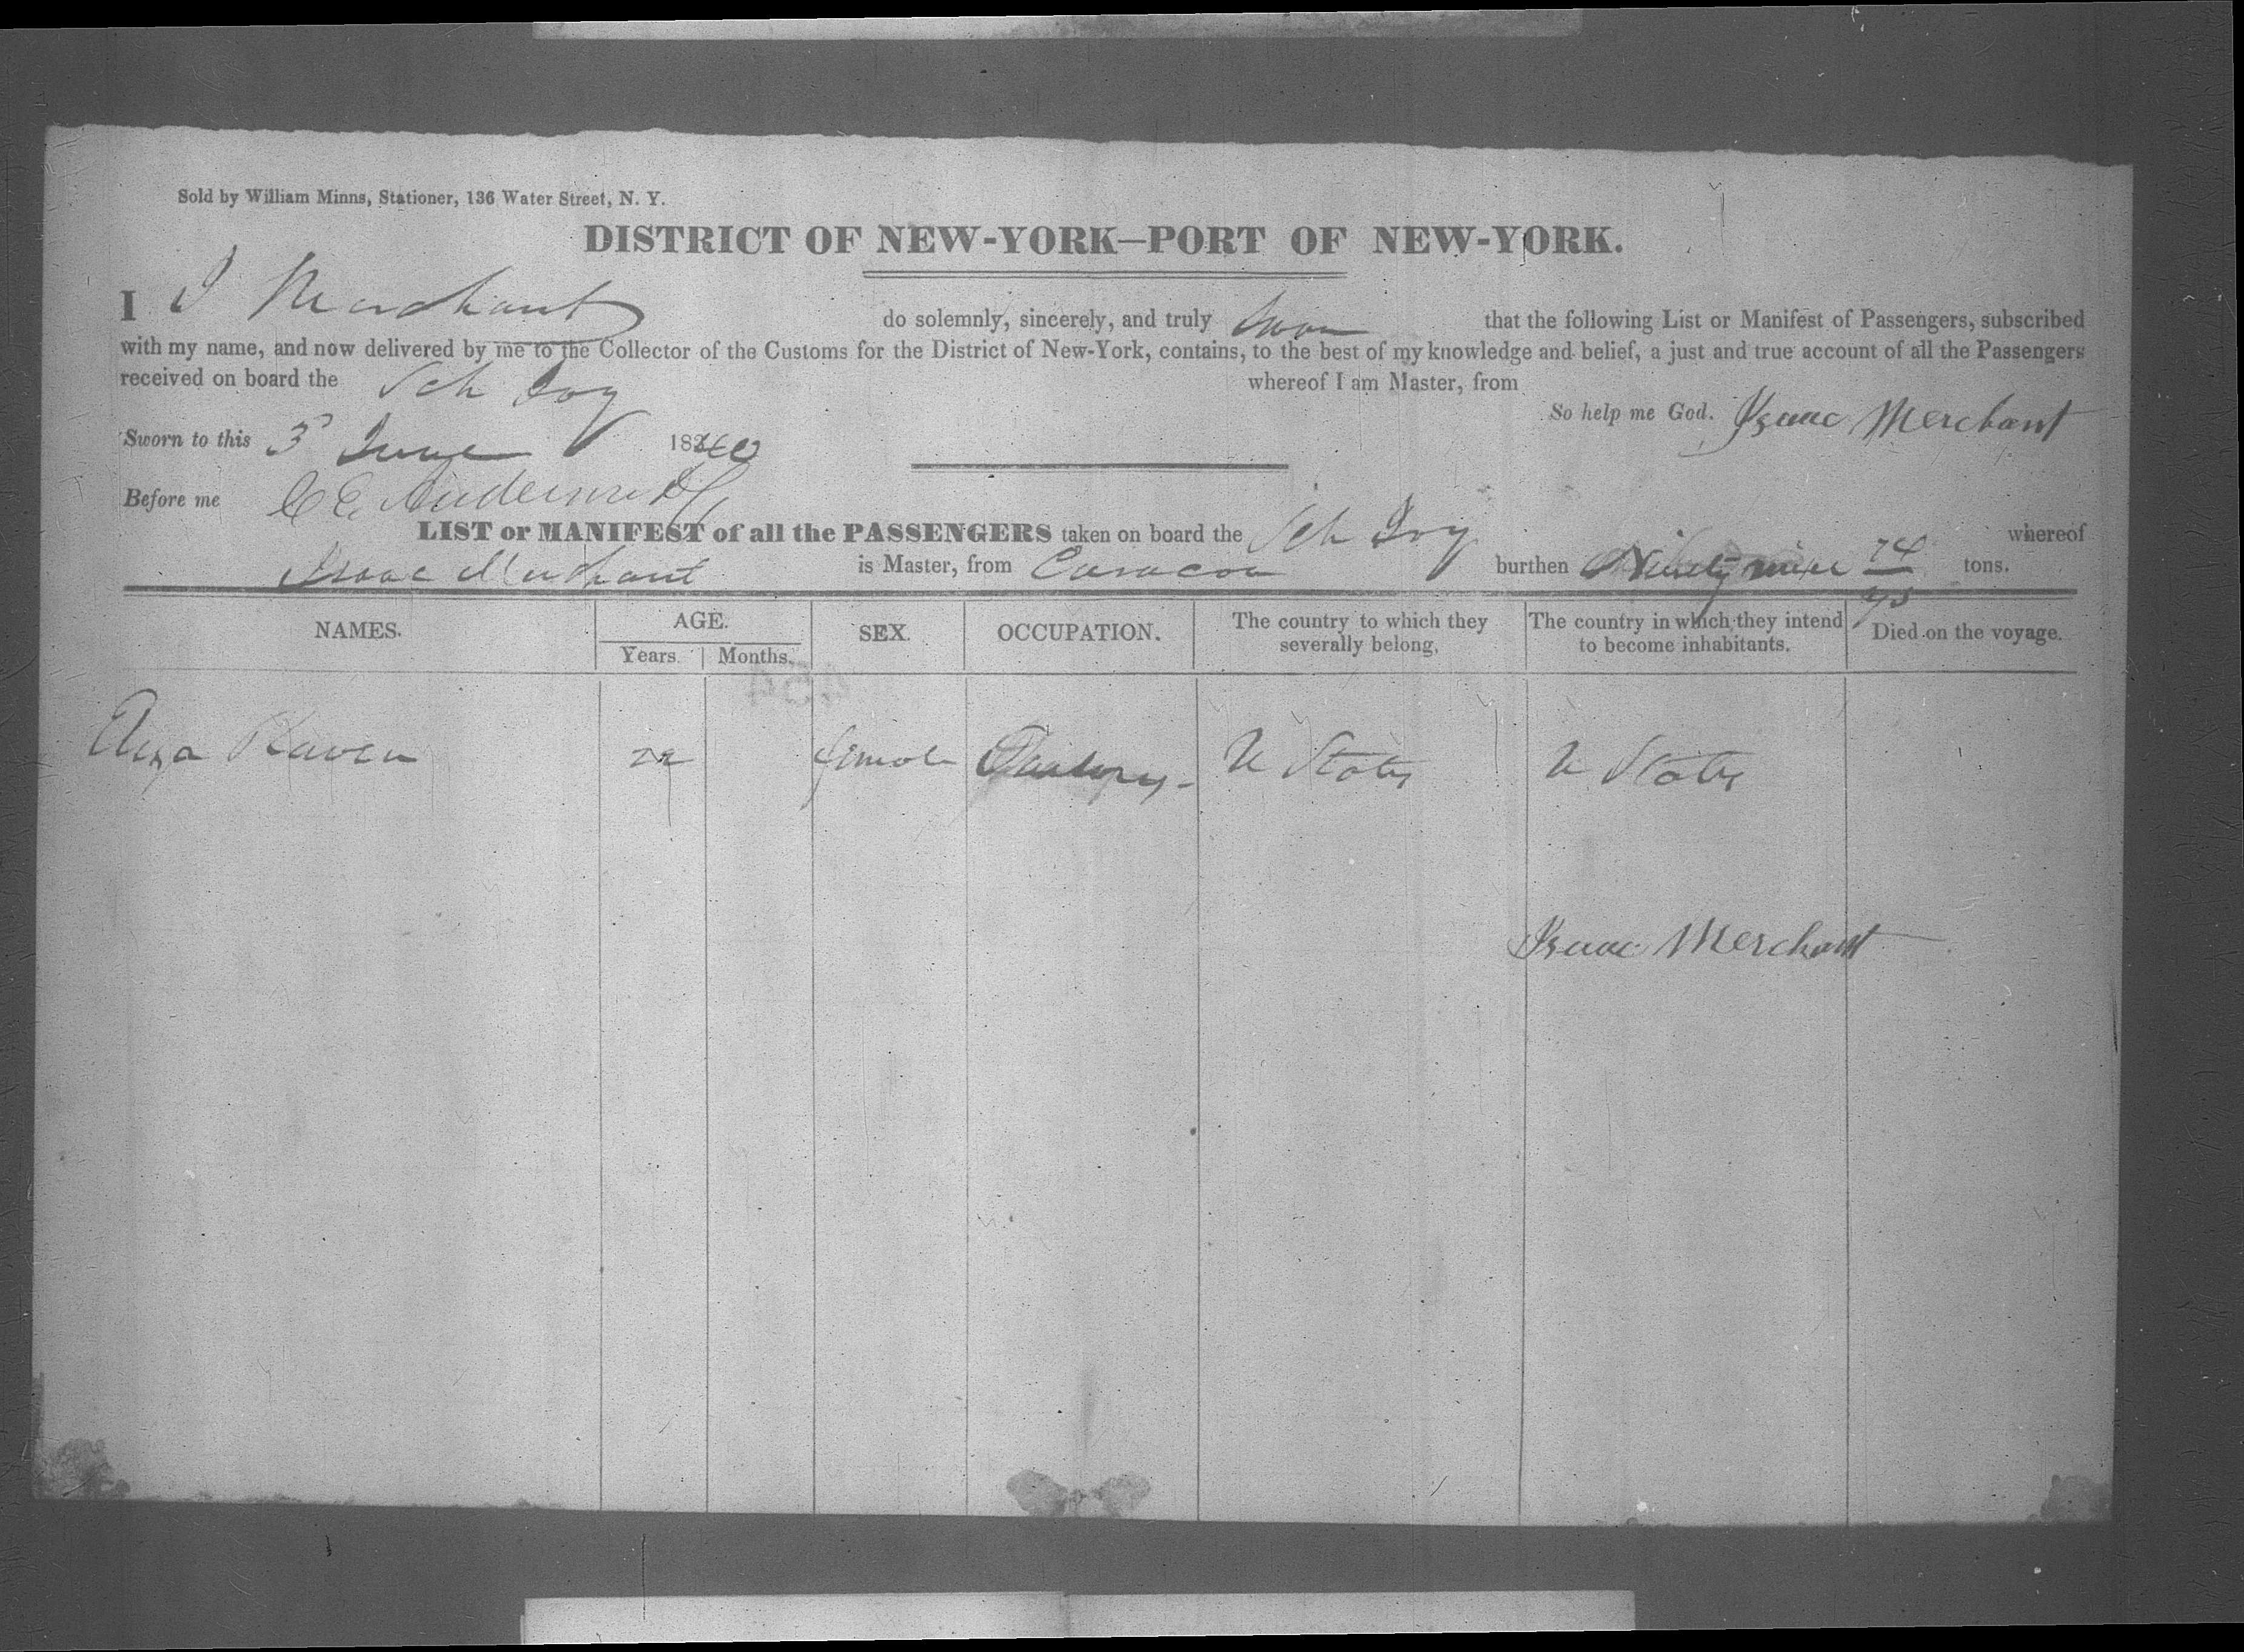 Sold by William Minns, Stationer, 136 Water Street, N. Y.
DISTRICT OF NEW-YORK—PORT OF NEW-YORK.
I I Merchant do solemnly, sincerely, and truly Swear that the following List or Manifest of Passengers, subscribed
with my name, and now delivered by me to the Collector of the Customs for the District of New-York, contains, to the best of my knowledge and belief, a just and true account of all the Passengers
received on board the Sch Ivy whereof I am Master, from
So help me God. Isaac Merchant
Sworn to this 3d June 1840
Before me C E Anderson
LIST or MANIFEST of all the PASSENGERS taken on board the Sch Ivy whereof
Isaac Merchant is Master, from Curacoa burthen Ninety nine 74/95 tons.
NAMES. AGE. SEX. OCCUPATION. The country to which they severally belong, The country in which they intend to become inhabitants. Died on the voyage.
Years. Months.
Eliza Raven 22 female U States U States
Isaac Merchant